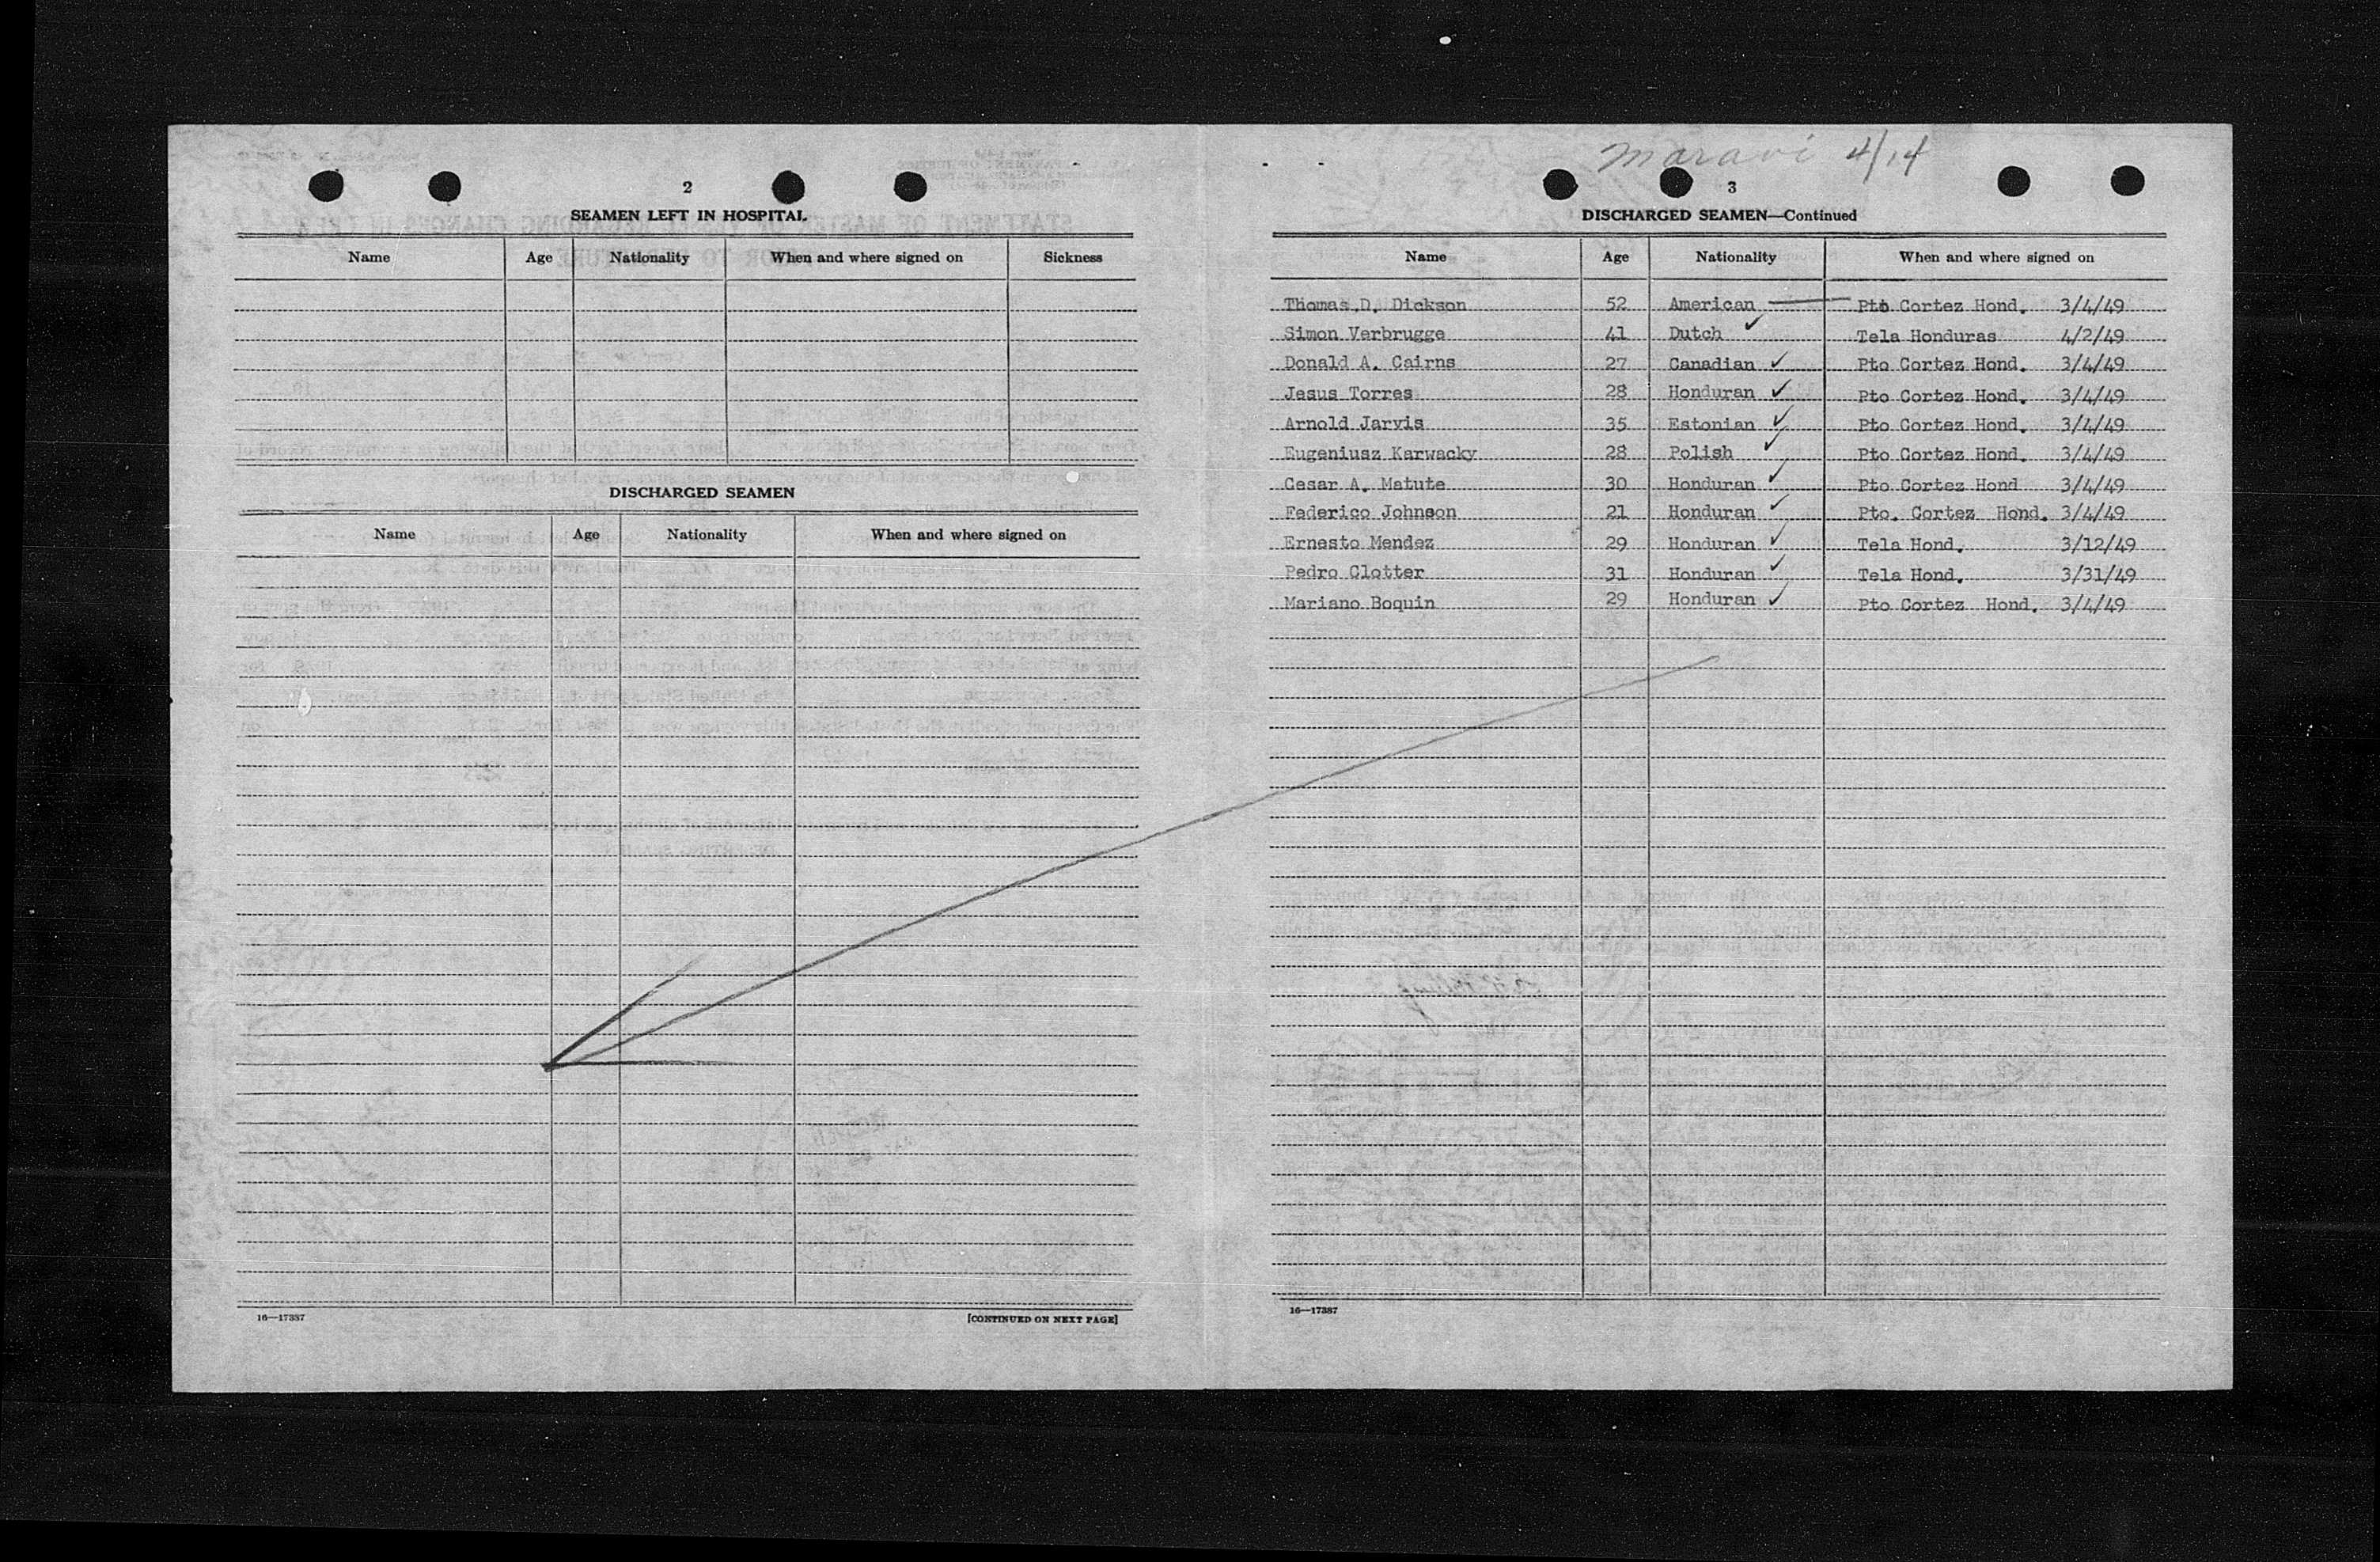 2
SEAMEN LEFT IN HOSPITAL
Name Age Nationality When and where signed on Sickness
DISCHARGED SEAMEN
Name Age Nationality When and where signed on
16—17387
[CONTINUED ON NEXT PAGE]
Maravi 4/14
3
DISCHARGED SEAMEN—Continued
Name Age Nationality When and where signed on
Thomas.D. Dickson 52 American Pto Cortez Hond. 3/4/49
Simon Verbrugge 41 Dutch ✓ Tela Honduras 4/2/49
Donald A. Cairns 27 Canadian ✓ Pto Cortez Hond. 3/4/49
Jesus Torres 28 Honduran ✓ Pto Cortez Hond. 3/4/49
Arnold Jarvis 35 Estonian ✓ Pto Cortez Hond. 3/4/49
Eugeniusz Karwacky 28 Polish ✓ Pto Cortez Hond. 3/4/49
Cesar A. Matute 30 Honduran ✓ Pto Cortez Hond 3/4/49
Federico Johnson 21 Honduran ✓ Pto. Cortez Hond. 3/4/49
Ernesto Mendez 29 Honduran ✓ Tela Hond. 3/12/49
Pedro Clotter 31 Honduran ✓ Tela Hond. 3/31/49
Mariano Boquin 29 Honduran ✓ Pto Cortez Hond. 3/4/49
16—17387